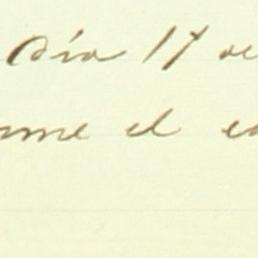 Día 17 de
me el